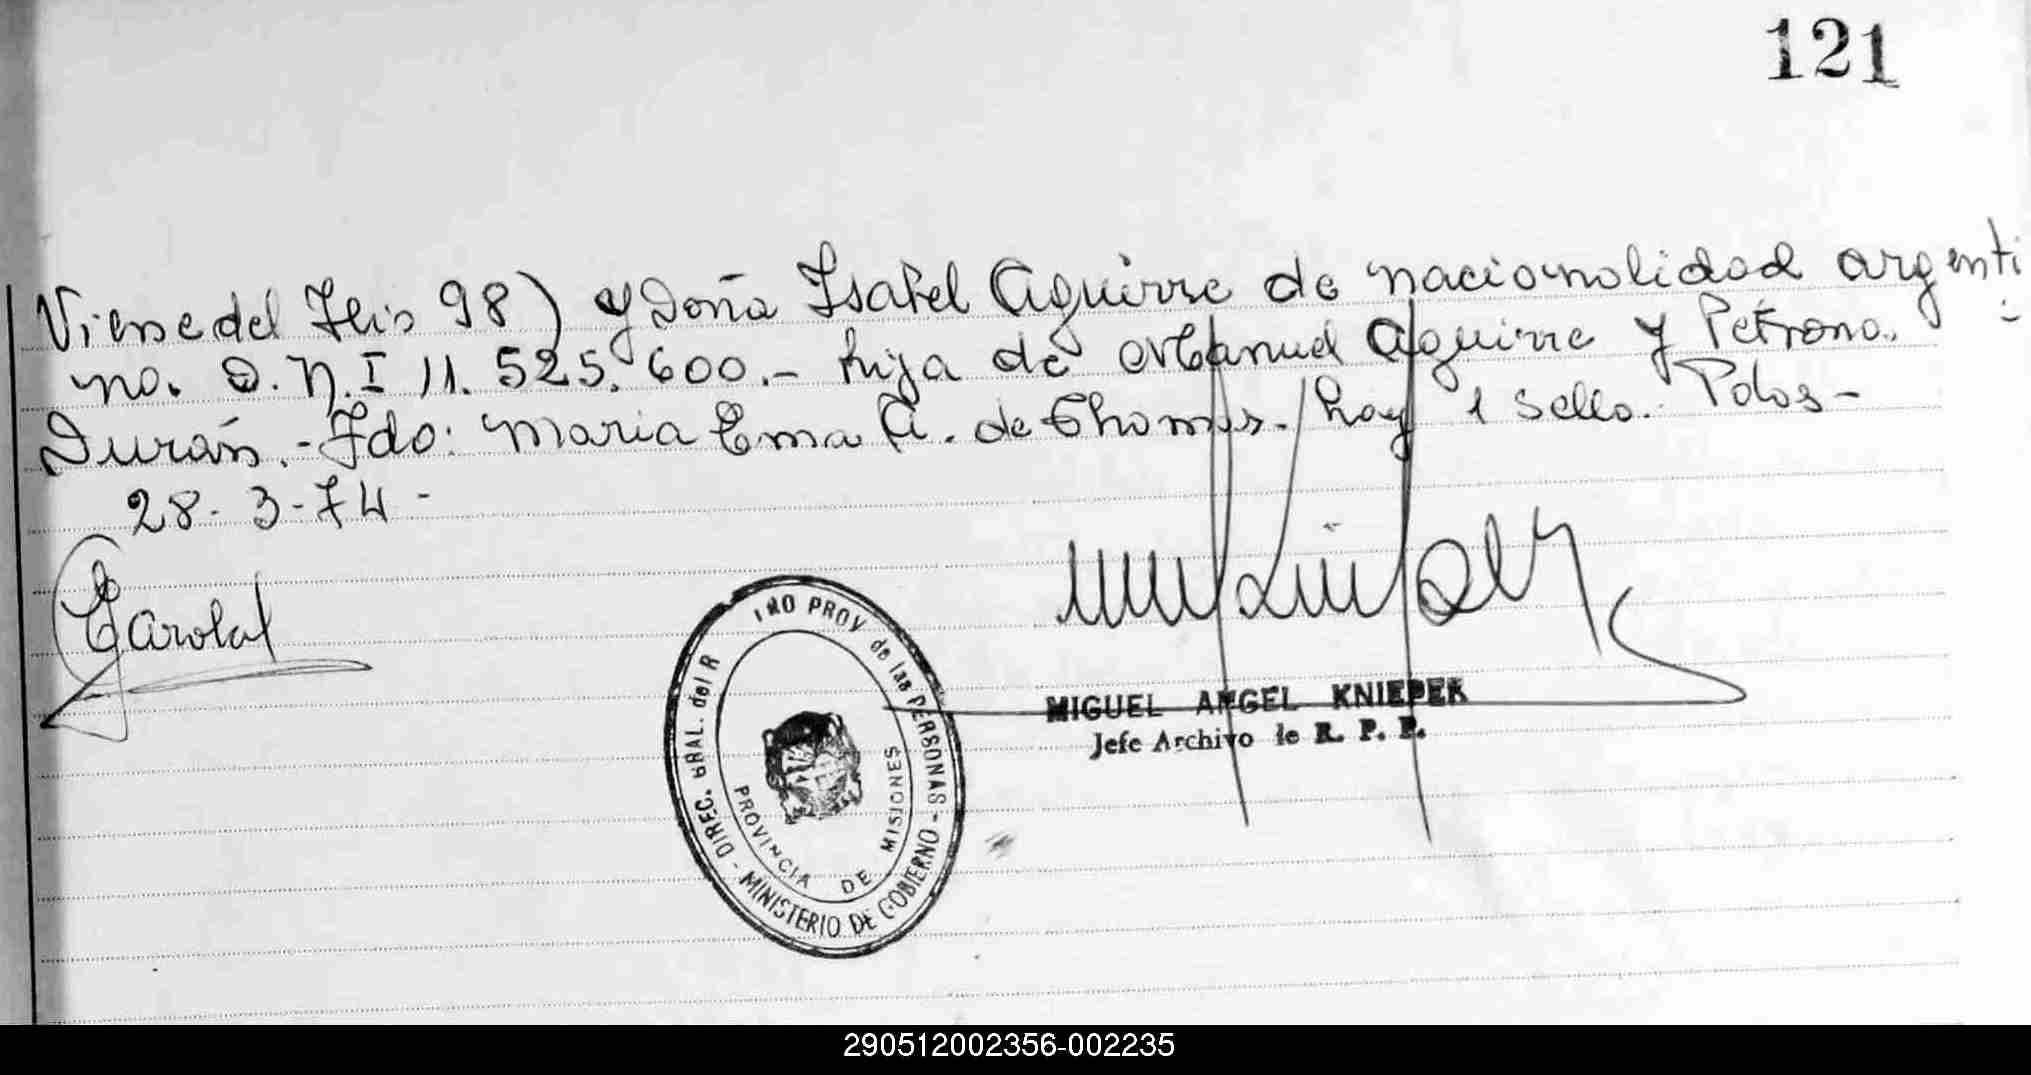 121
Viene del Flio 98) y Doña Isabel Aguirre de nacionalidad argenti
na. D.N.I 11.525.600.- hija de Manuel Aguirre y Petrona
Durán.- Fdo: Maria Ema A. de Thomas. hay 1 sello. Pdas-
28-3-74-
DIREC. GRAL. del R PROV de las PERSONAS - MINISTERIO DE GOBIERNO -
PROVINCIA DE MISIONES
MIGUEL ANGEL KNIEPER
Jefe Archivo de R. P. P.
290512002356-002235